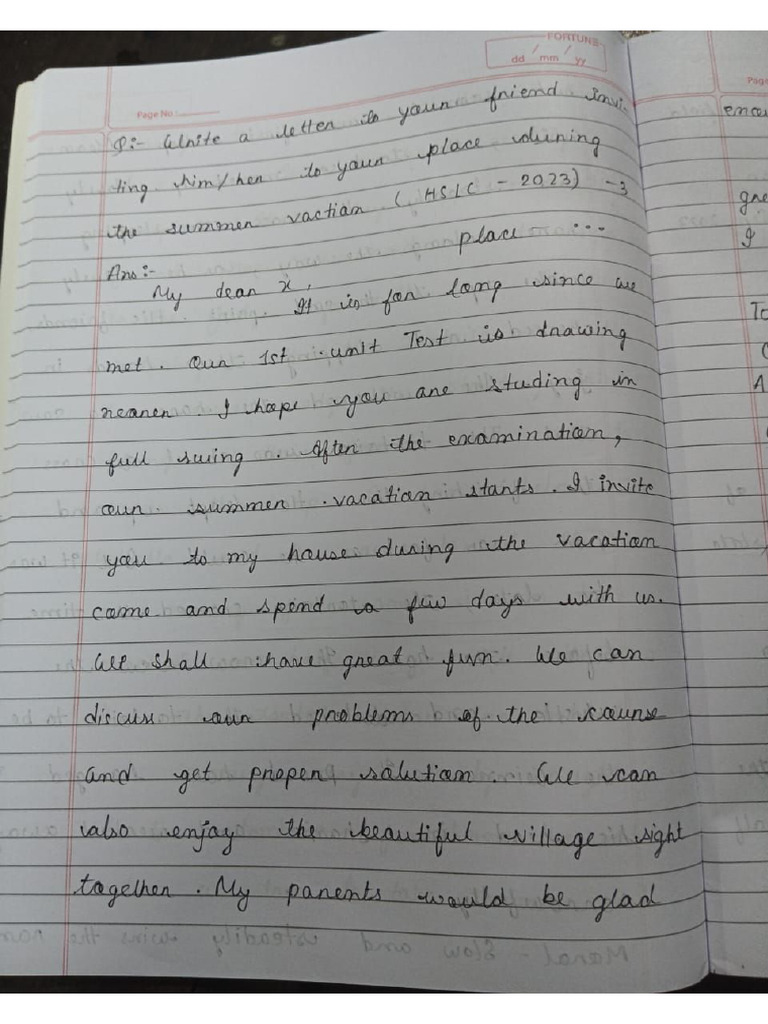 FORTUNE
dd / mm / yy
Page No:
Q:- Write a letter to your friend invi-
ting him/her to your place during
the summer vaction. (HSLC - 2023) -3
place ...
Ans:-
My dear X,
It is for long since we
met. Our 1st unit Test is drawing
nearer. I hope you are studing in
full swing. After the examination,
our summer vacation starts. I invite
you to my house during the vacation
come and spend a few days with us.
We shall have great fun. We can
discuss our problems of the course
and get proper solution. We can
also enjoy the beautiful village sight
together. My parents would be glad
Page
I
To
A